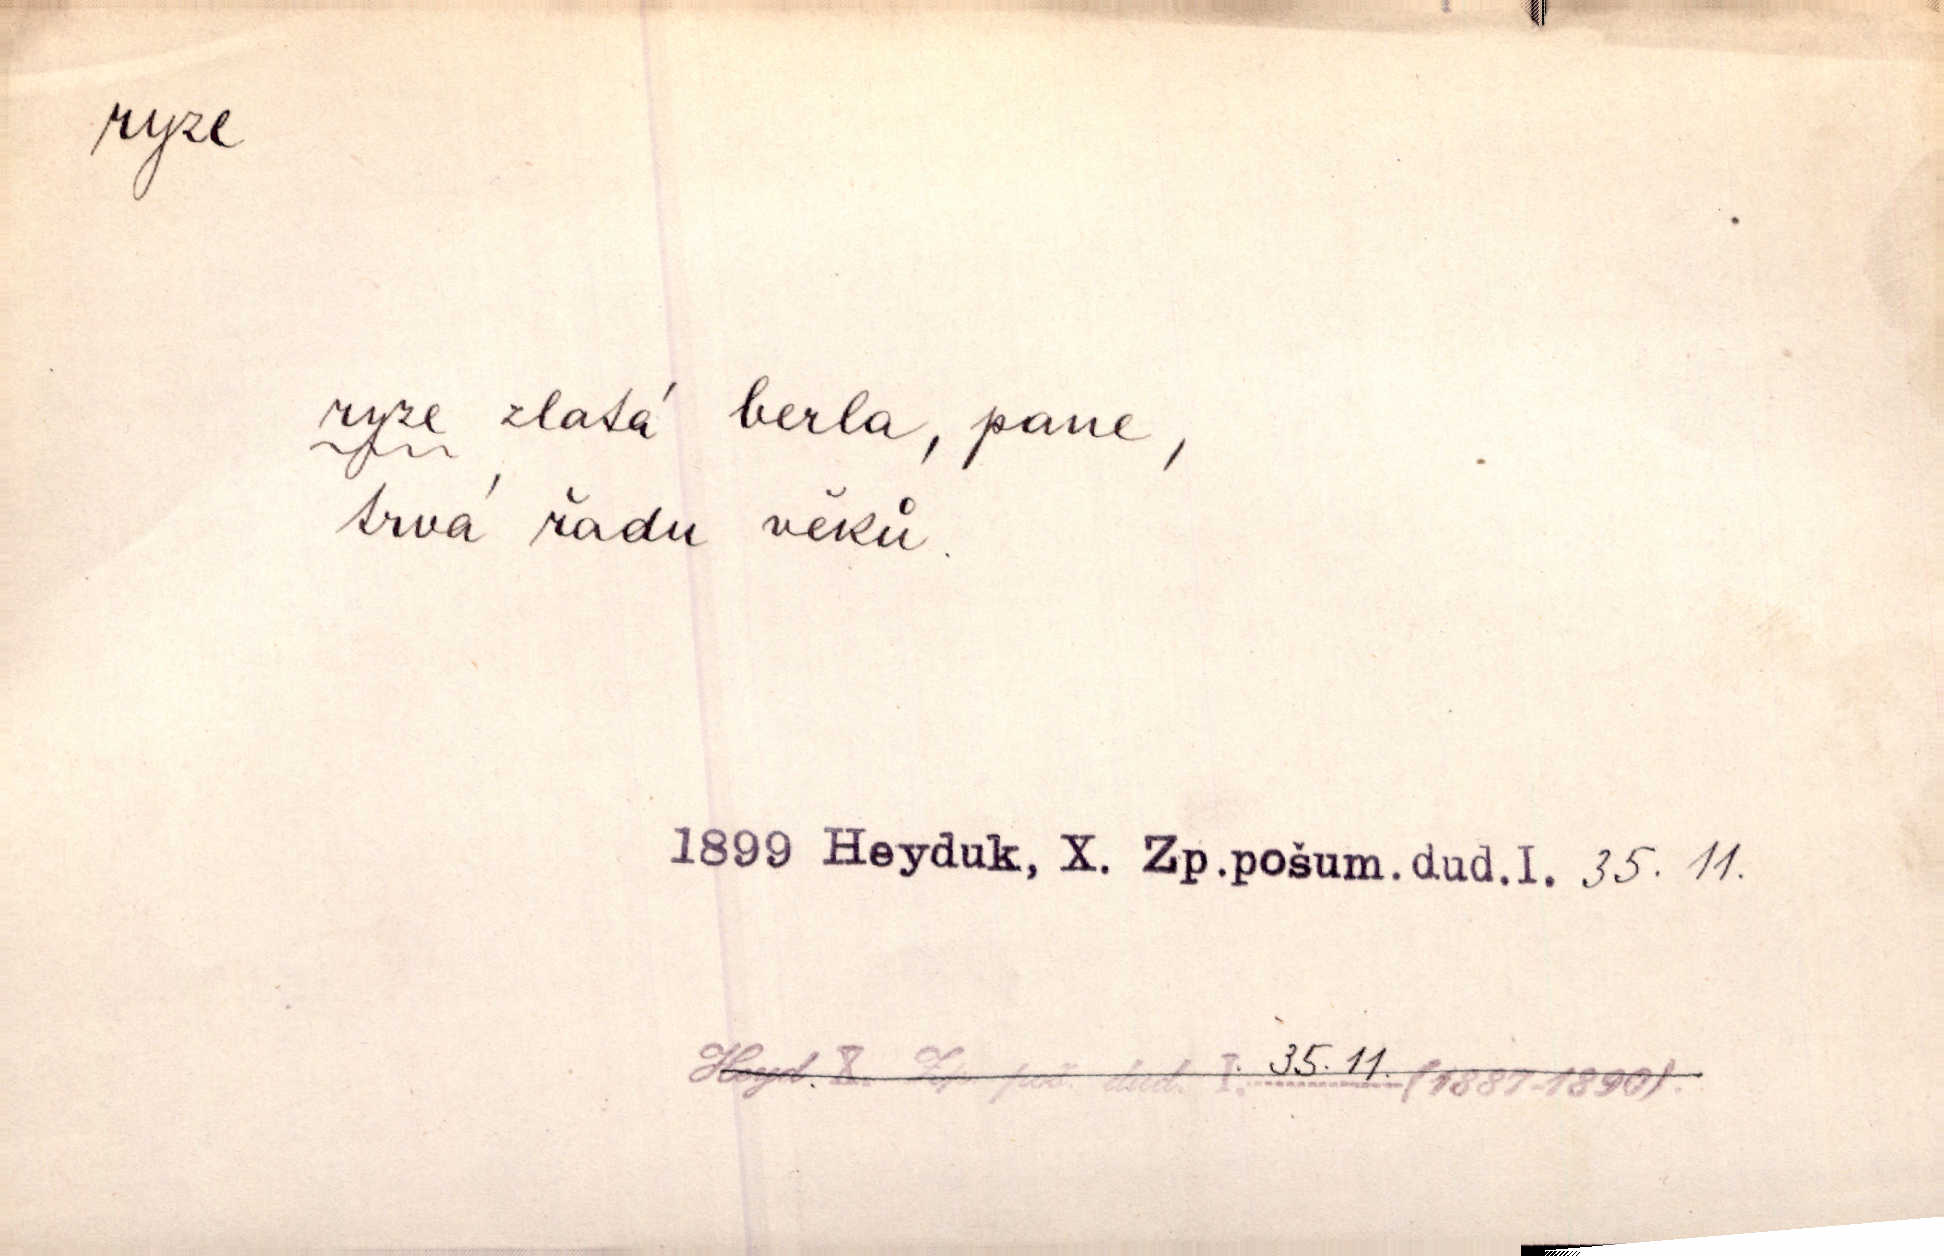 ryze
ryze zlatá berla, pane,
trvá řadu věků.
1899 Heyduk, X. Zp.pošum.dud.I. 35. 11.
Heyd. X. Zp. poš. dud. I. 35. 11. (1887-1890).